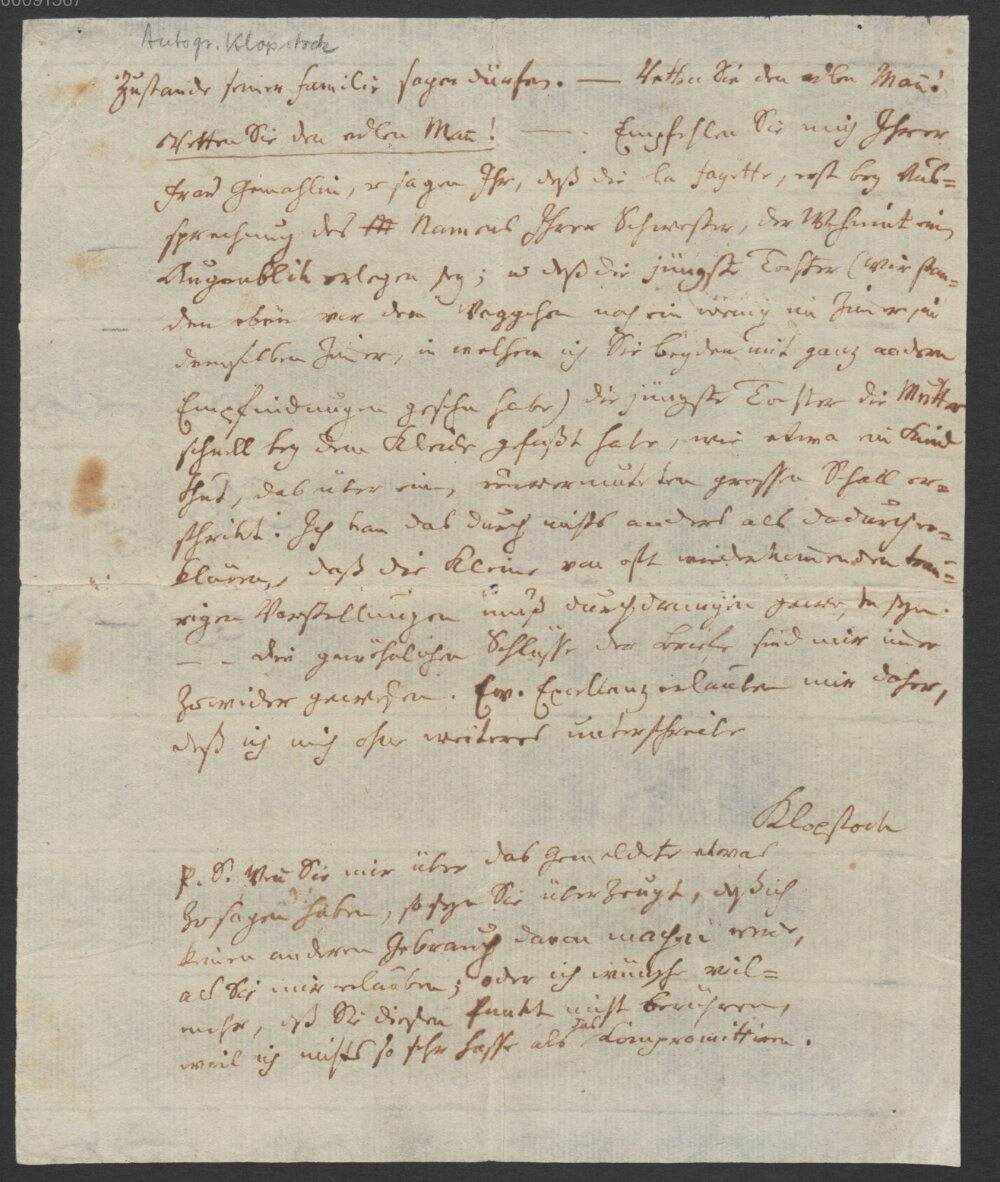 00091567
Autogr. Klopstock
Zustande seiner Familie sagen dürfen. — Retten Sie den edlen Mañ!
Retten Sie den edlen Mañ! — Empfehlen Sie mich Ihrer
Frau Gemahlin, u sagen Ihr, daß die la Fayette, erst bey Aus=
sprechung des Namens Ihrer Schwester, der Wehmut ein
Augenblik erlegen sey; u daß die jüngste Tochter (wir stan=
den eben vor dem Weggehen noch ein wenig im Zim̃er, in
demselben Zim̃er, in welchem ich Sie beyde mit ganz andern
Empfindungen gesehn habe) die jüngste Tochter die Mutter
schnell bey dem Kleide gefaßt habe, wie etwa ein Kind
thut, das über einen unvermuteten grossen Schall er=
schrikt. Ich kan das durch nichts anders als dadurch er=
klären, daß die Kleine von oft wiederkom̃enden trau=
rigen Vorstellungen muß durchdrungen geworden seyn.
— — Die gewöhnlichen Schlüsse der Briefe sind mir im̃er
zuwider gewesen. Ew. Excellenz erlauben mir daher,
daß ich mich ohne weiteres unterschreibe
Klopstock
P. S. Weñ Sie mir über das Gemeldete etwas
zu sagen haben, so seyn Sie überzeugt, daß ich
keinen anderen Gebrauch davon machen werde,
als Sie mir erlauben; oder ich wünsche viel=
mehr, daß Sie diesen Punkt nicht berühren,
weil ich nichts so sehr hasse als das Kompromittiren.